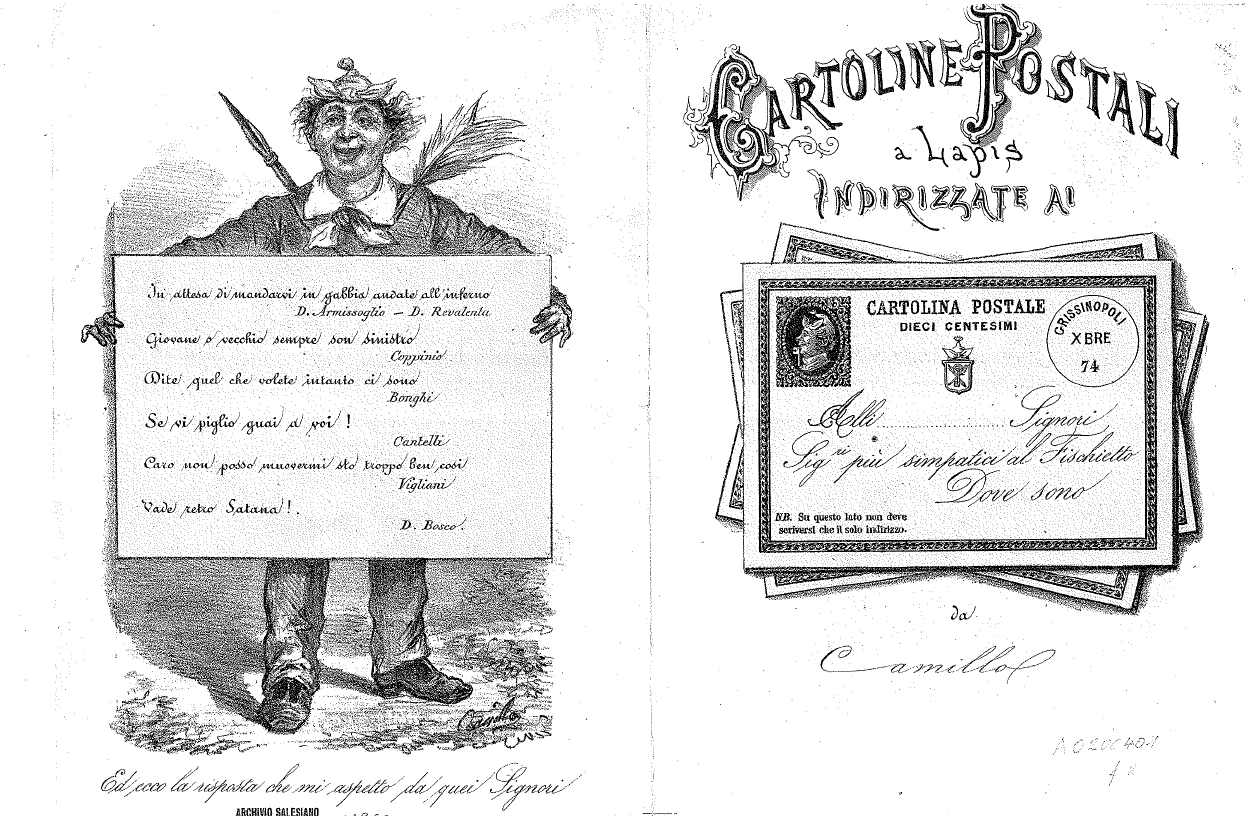 In attesa di mandarvi in gabbia andate all'inferno
D. Armissoglio — D. Revalenta
Giovane o vecchio sempre son sinistro
Coppinio
Dite quel che volete intanto ci sono
Bonghi
Se vi piglio guai a voi !
Cantelli
Caro non posso muovermi sto troppo ben così
Vigliani
Vade retro Satana !.
D. Bosco.
Camillo
Ed ecco la risposta che mi aspetto da quei Signori
ARCHIVIO SALESIANO
CARTOLINE POSTALI
a Lapis
INDIRIZZATE AI
CARTOLINA POSTALE
DIECI CENTESIMI
GRISSINOPOLI
XBRE
74
Alli ............ Signori
Sig.ri più simpatici al Fischietto
Dove sono
NB. Su questo lato non deve
scriversi che il solo indirizzo.
da
Camillo
A0200401